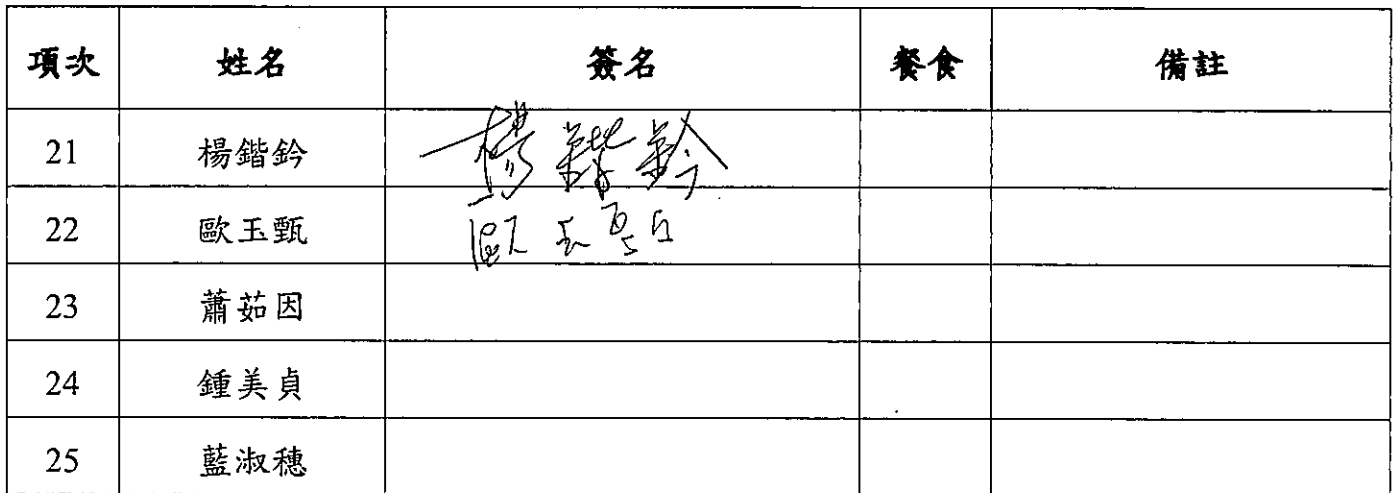 項次 姓名 簽名 餐食 備註
21 楊鍇鈐 楊鍇鈐
22 歐玉甄 歐玉甄
23 蕭茹因
24 鍾美貞
25 藍淑穗